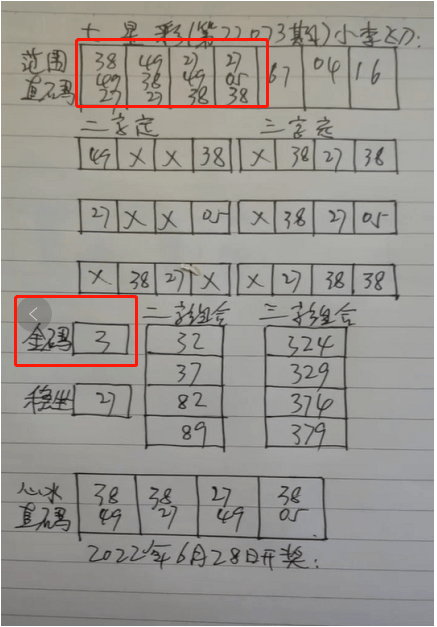 七星彩(第22073期)小李飞刀:
范围 38 49 27 27 67 04 16
49 38 49 05
直码 27 27 38 38
二字定 三字定
49 X X 38 X 38 27 38
27 X X 05 X 38 27 05
X 38 27 X X 27 38 38
二字组合 三字组合
金码 3 32 324
37 329
稳坐 27 82 374
89 379
心水 38 38 27 38
直码 49 27 49 05
2022年6月28日开奖: